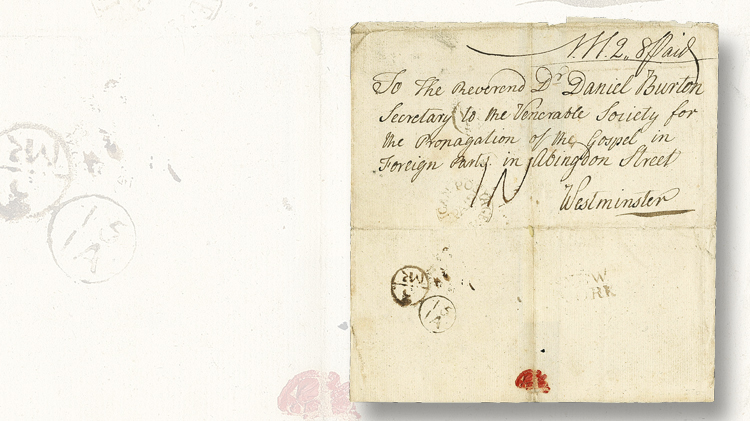 2,, 8 Paid
To The Reverend Dr Daniel Burton
Secretary to the Venerable Society for
the Propagation of the Gospel in
Foreign Parts in Abingdon Street
Westminster
NEW
YORK